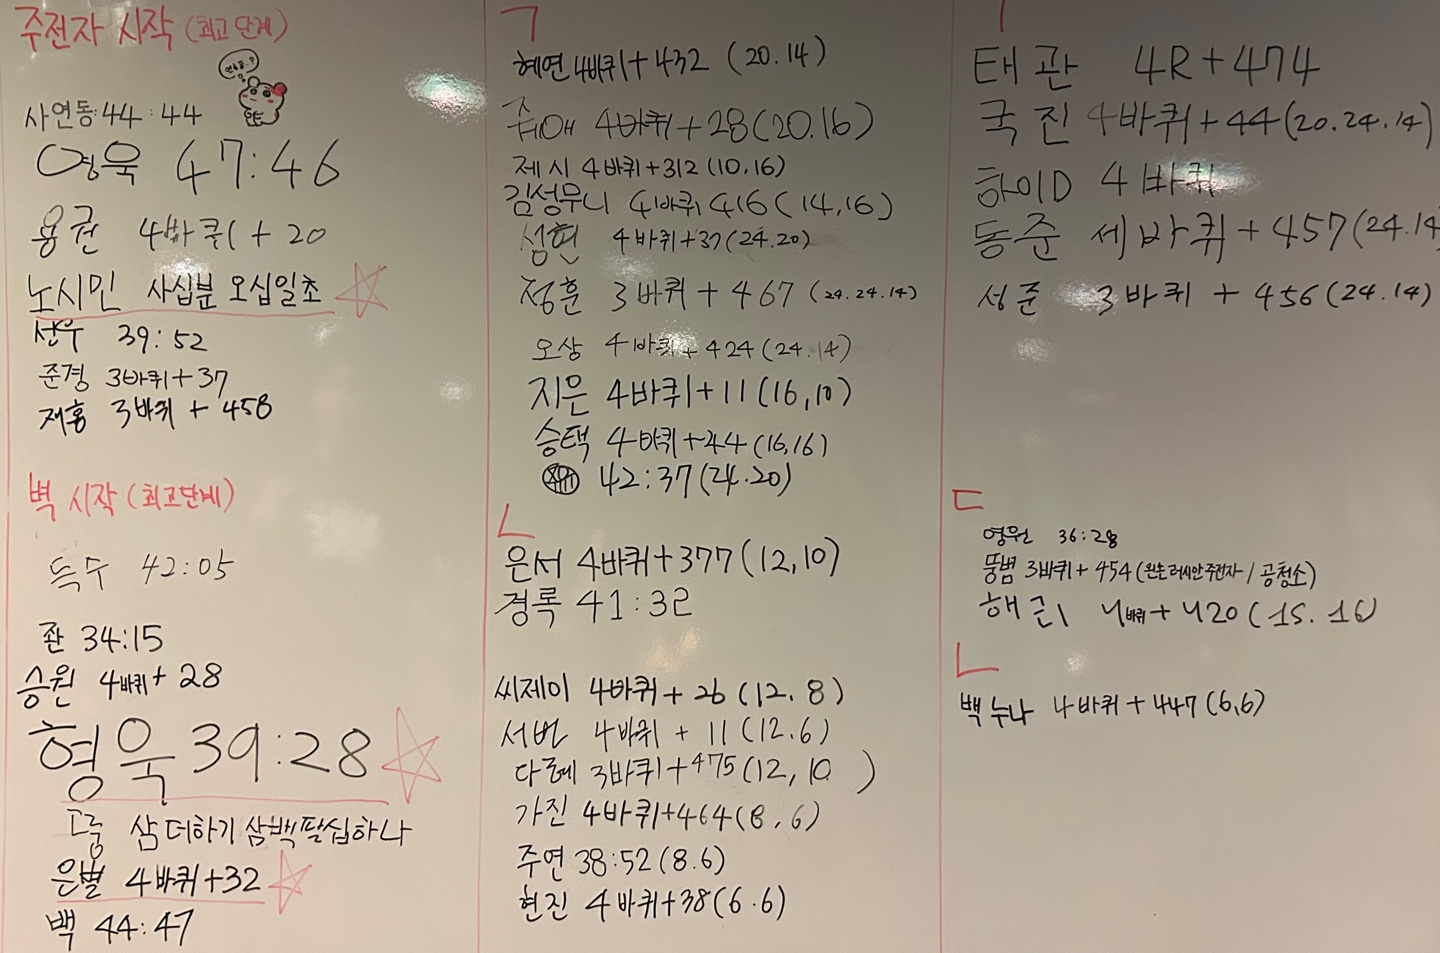 주전자 시작 (최고단계)
사연동 44:44
영욱 47:46
용권 4바퀴 + 20
노시민 사십분 오십일초
선우 39:52
준경 3바퀴+37
재홍 3바퀴 + 458
벽 시작 (최고단계)
득수 42:05
좐 34:15
승원 4바퀴+ 28
형욱 39:28
고릉 삼 더하기 삼백팔십하나
은별 4바퀴+32
백 44:47
ㄱ
혜연 4바퀴+432 (20.14)
쥬애 4바퀴+28(20.16)
제시 4바퀴+312 (10,16)
김성무니 4바퀴 416 (14,16)
섬현 4바퀴+37(24.20)
정훈 3바퀴 + 467 (24.24.14)
오상 4바퀴+424(24.14)
지은 4바퀴+11(16,10)
승택 4바퀴+44(16,16)
42:37(24.20)
ㄴ
은서 4바퀴+377(12,10)
경록 41:32
씨제이 4바퀴+26(12.8)
서번 4바퀴 + 11(12.6)
다혜 3바퀴+475(12,10)
가진 4바퀴+464(8,6)
주연 38:52(8.6)
현진 4바퀴+38(6.6)
ㄱ
태관 4R+474
국진 4바퀴+44(20.24.14)
하이D 4바퀴
동준 세바퀴+457(24.14
성준 3바퀴 + 456(24.14)
ㄷ
영원 36:28
뚱범 3바퀴+454(왼손러시안주전자/공청소)
해근 4바퀴+420(15.16)
ㄴ
백누나 4바퀴+447(6,6)